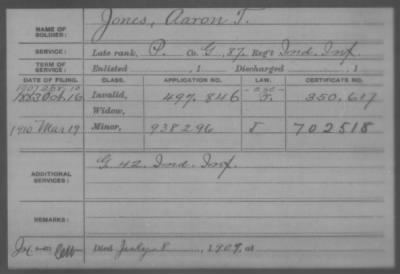 NAME OF SOLDIER: Jones, Aaron T.
SERVICE: Late rank, P. Co. G, 87. Reg't Ind. Inf.
TERM OF SERVICE: Enlisted , 1 Discharged , 1
DATE OF FILING. CLASS. APPLICATION NO. LAW. CERTIFICATE NO.
Oct. 16 Invalid, 497.846 350.617
Widow,
1910 Mar 19 Minor, 938296 702518
ADDITIONAL SERVICES: G 42. Ind. Inf.
REMARKS:
Died July 8, 1909, at